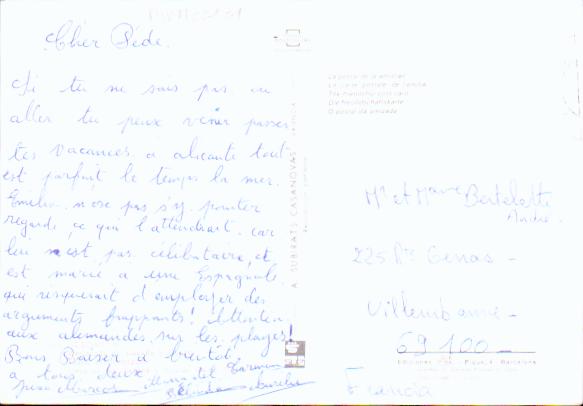 Cher Dédé.
Si tu ne sais pas ou
aller tu peux venir passer
tes vacances. a alicante tout
est parfait le temps la mer.
Emilio. n'ose pas s'y pointer
regarde ce qui l'attendrait. car
lui n'est pas célibataire, et
est marié a une Espagnole
qui risquerait d'employer des
arguments frappants! Attention
aux alemandes sur les plages!
Bons Baiser a bientôt.
a tous deux
Carmen
A. SUBIRATS CASANOVAS
La postal de la amistad
La carte postale de l'amitié
The friendship post card
Die freundschaftskarte
O postal da amizade
Mr et Mme Bertelotte
André.
225 Rte Genas -
Villeurbanne -
69100 -
Barcelona
Francia